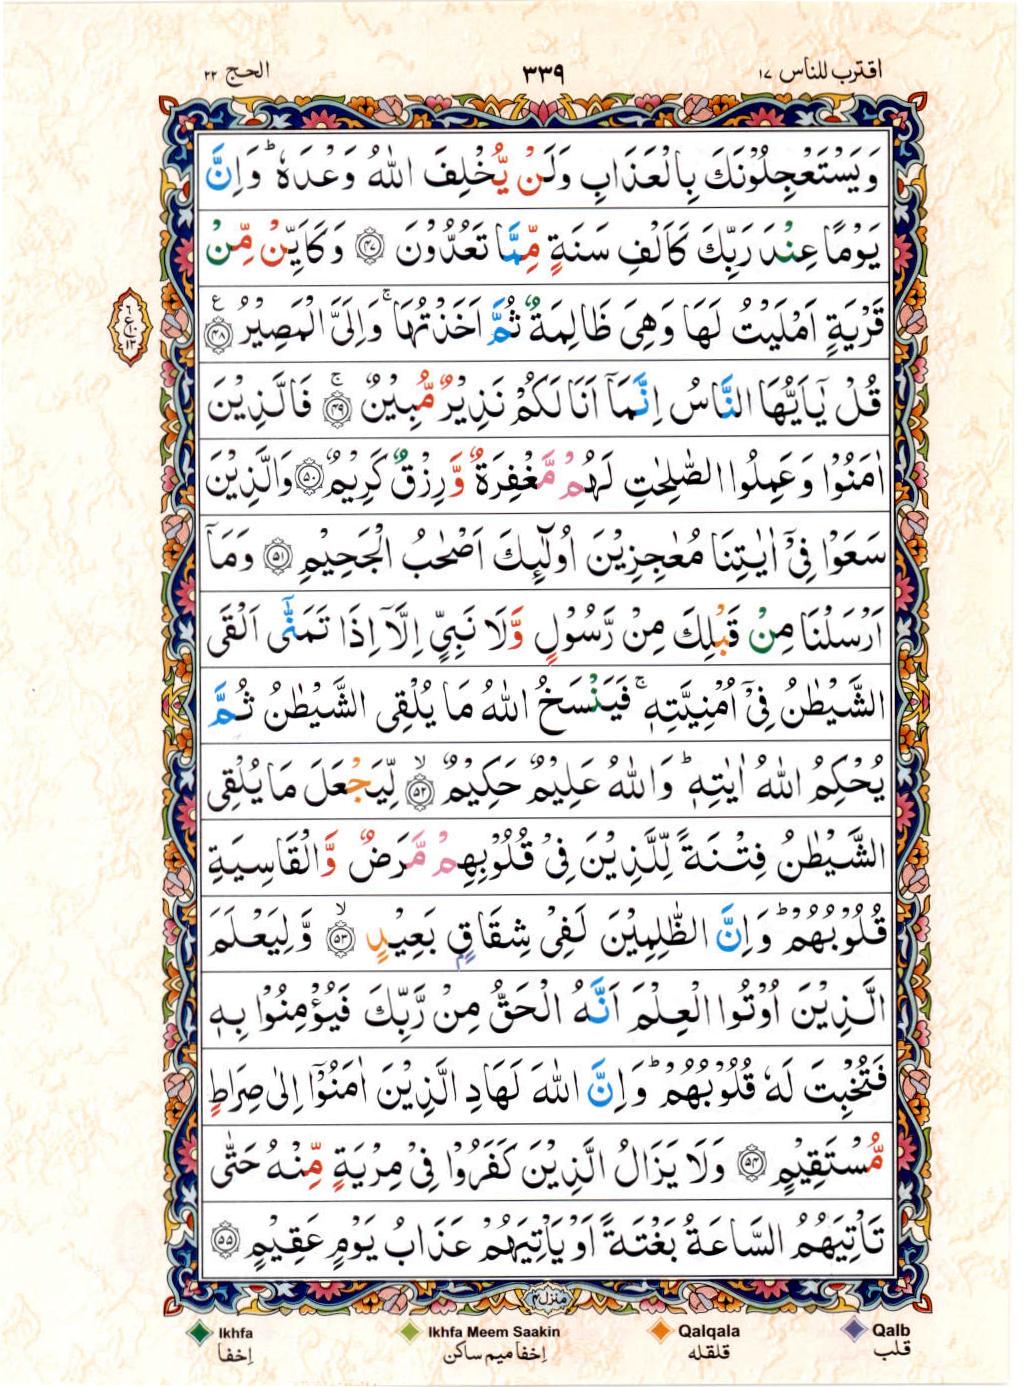 اقترب للناس ١٧
٣٣٩
الحج ٢٢
وَيَسْتَعْجِلُوْنَكَ بِالْعَذَابِ وَلَنْ يُّخْلِفَ اللّٰهُ وَعْدَهٗ ؕ وَاِنَّ
يَوْمًا عِنْدَ رَبِّكَ كَاَلْفِ سَنَةٍ مِّمَّا تَعُدُّوْنَ ﴿۴۷﴾ وَكَاَيِّنْ مِّنْ
قَرْيَةٍ اَمْلَيْتُ لَهَا وَهِىَ ظَالِمَةٌ ثُمَّ اَخَذْتُهَا ۚ وَاِلَىَّ الْمَصِيْرُ ﴿۴۸﴾ ع
٦
ع
١٠
١٣
قُلْ يٰۤاَيُّهَا النَّاسُ اِنَّمَاۤ اَنَا لَكُمْ نَذِيْرٌ مُّبِيْنٌ ۚ﴿۴۹﴾ فَالَّذِيْنَ
اٰمَنُوْا وَعَمِلُوا الصّٰلِحٰتِ لَهُمْ مَّغْفِرَةٌ وَّرِزْقٌ كَرِيْمٌ ﴿۵۰﴾ وَالَّذِيْنَ
سَعَوْا فِىْۤ اٰيٰتِنَا مُعٰجِزِيْنَ اُولٰٓئِكَ اَصْحٰبُ الْجَحِيْمِ ﴿۵۱﴾ وَمَاۤ
اَرْسَلْنَا مِنْ قَبْلِكَ مِنْ رَّسُوْلٍ وَّلَا نَبِىٍّ اِلَّاۤ اِذَا تَمَنّٰٓى اَلْقَى
الشَّيْطٰنُ فِىْۤ اُمْنِيَّتِهٖ ۚ فَيَنْسَخُ اللّٰهُ مَا يُلْقِى الشَّيْطٰنُ ثُمَّ
يُحْكِمُ اللّٰهُ اٰيٰتِهٖ ؕ وَاللّٰهُ عَلِيْمٌ حَكِيْمٌ ۙ﴿۵۲﴾ لِّيَجْعَلَ مَا يُلْقِى
الشَّيْطٰنُ فِتْنَةً لِّلَّذِيْنَ فِىْ قُلُوْبِهِمْ مَّرَضٌ وَّالْقَاسِيَةِ
قُلُوْبُهُمْ ؕ وَاِنَّ الظّٰلِمِيْنَ لَفِىْ شِقَاقٍۭ بَعِيْدٍ ۙ﴿۵۳﴾ وَّلِيَعْلَمَ
الَّذِيْنَ اُوْتُوا الْعِلْمَ اَنَّهُ الْحَقُّ مِنْ رَّبِّكَ فَيُؤْمِنُوْا بِهٖ
فَتُخْبِتَ لَهٗ قُلُوْبُهُمْ ؕ وَاِنَّ اللّٰهَ لَهَادِ الَّذِيْنَ اٰمَنُوْۤا اِلٰى صِرَاطٍ
مُّسْتَقِيْمٍ ﴿۵۴﴾ وَلَا يَزَالُ الَّذِيْنَ كَفَرُوْا فِىْ مِرْيَةٍ مِّنْهُ حَتّٰى
تَاْتِيَهُمُ السَّاعَةُ بَغْتَةً اَوْ يَاْتِيَهُمْ عَذَابُ يَوْمٍ عَقِيْمٍ ﴿۵۵﴾
منزل۴
Ikhfa
اِخفا
Ikhfa Meem Saakin
اِخفا میم ساکن
Qalqala
قلقله
Qalb
قلب